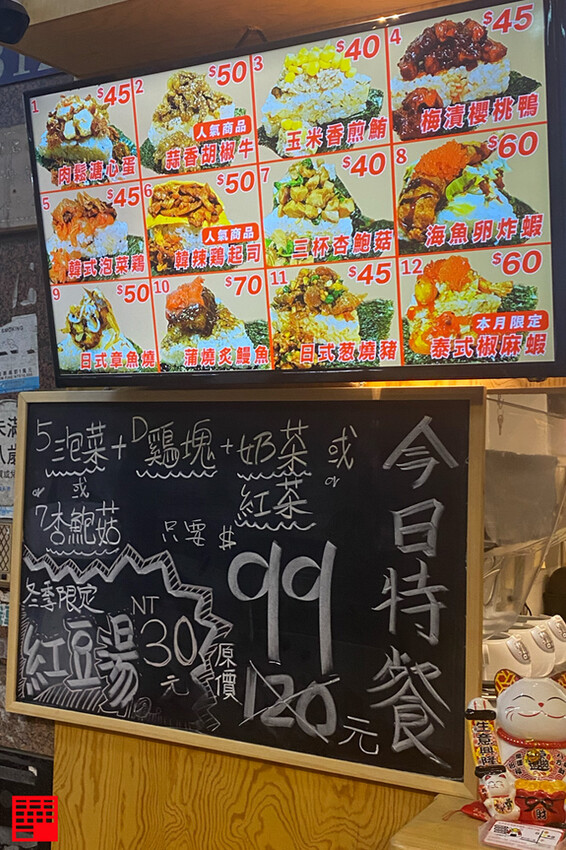 1 $45
肉鬆溏心蛋
2 $50
人氣商品
蒜香胡椒牛
3 $40
玉米香煎鮪
4 $45
梅漬櫻桃鴨
5 $45
韓式泡菜鶏
6 $50
人氣商品
韓辣鶏起司
7 $40
三杯杏鮑菇
8 $60
海魚卵炸蝦
9 $50
日式章魚燒
10 $70
蒲燒炙鰻魚
11 $45
日式葱燒豬
12 $60
本月限定
泰式椒麻蝦
今日特餐
5泡菜+D鷄塊+奶茶 或 or
or 或 紅茶
7杏鮑菇 只要 $99
原價 120 元
冬季限定
紅豆湯
NT 30 元
生意興隆